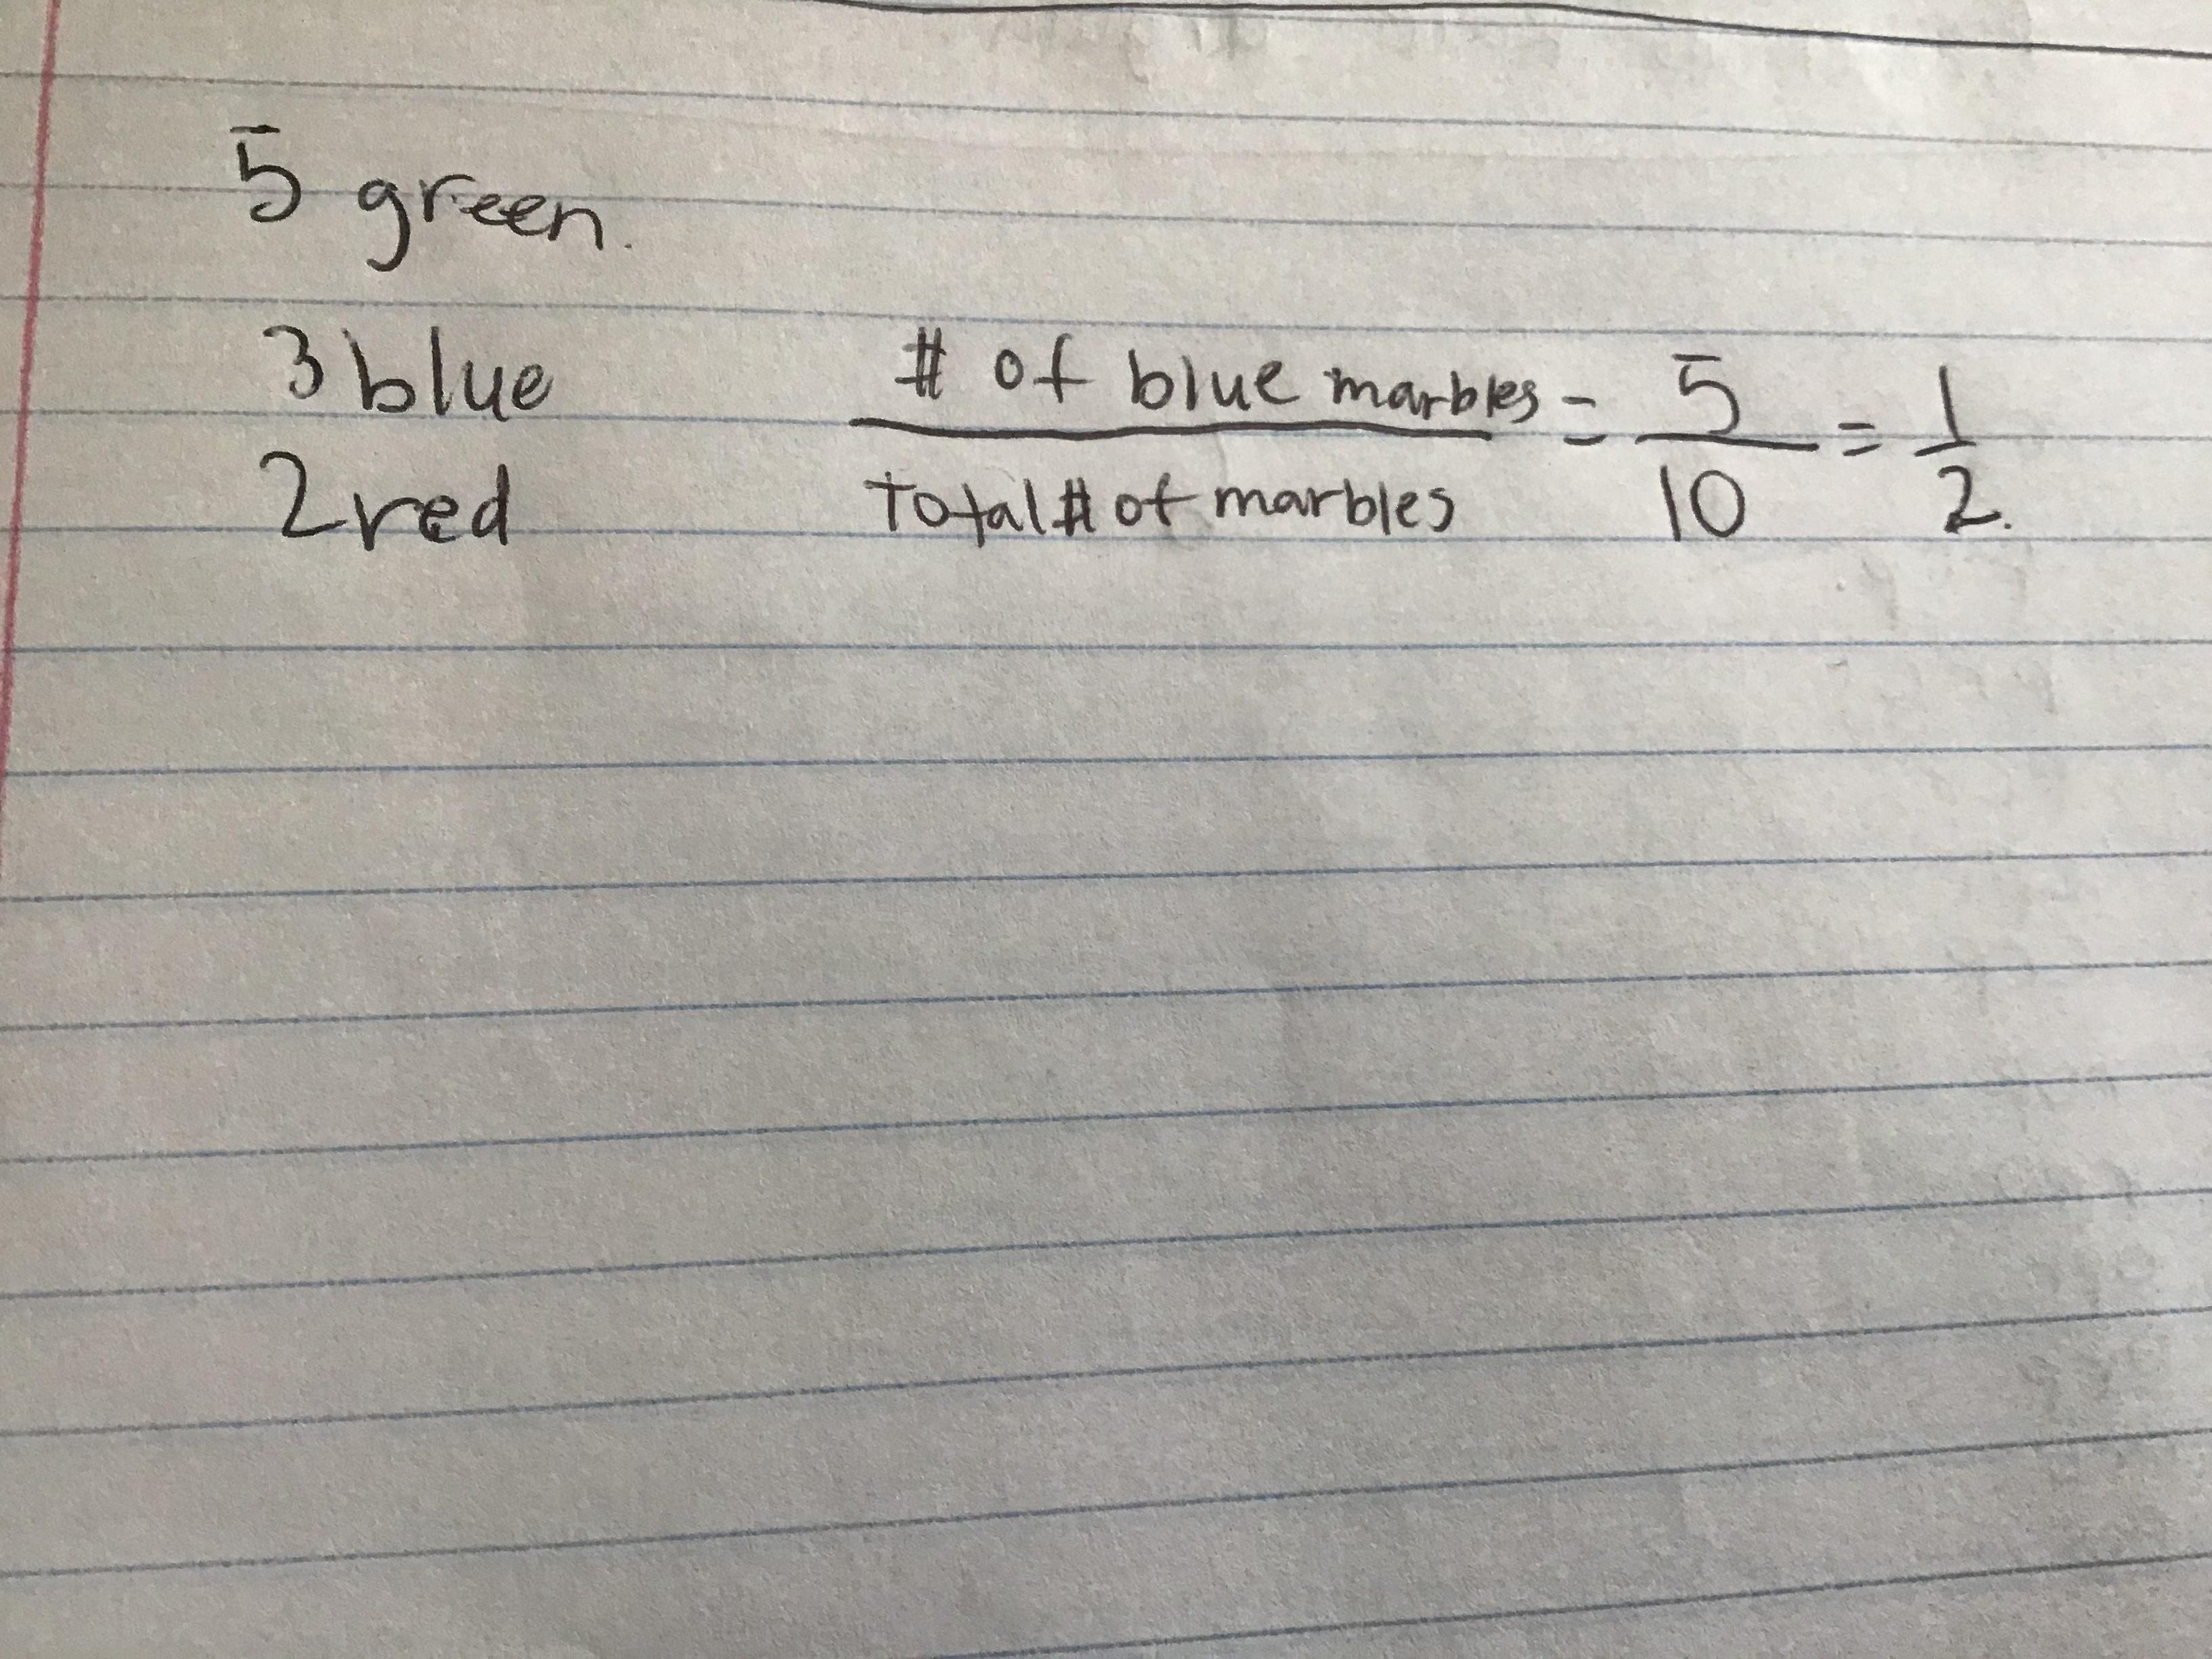 5 green.
3 blue
2 red
# of blue marbles = 5 = 1
Total # of marbles 10 2.